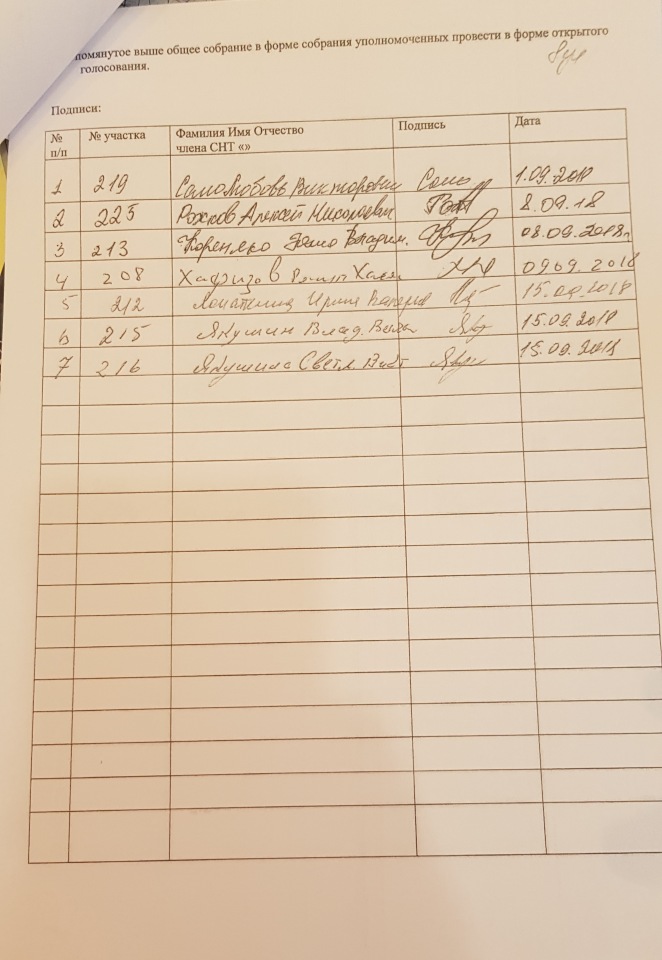 помянутое выше общее собрание в форме собрания уполномоченных провести в форме открытого
голосования.
Подписи:
№ п/п № участка Фамилия Имя Отчество члена СНТ «» Подпись Дата
1 219 Викторовна 1.09.2018
2 225 Рожков Алексей Николаевич 8.09.18
3 213 Владим. 08.09.2018г
4 208 0909.2018
5 212 Ирина 15.09.2018
6 215 Якушин Влад. 15.09.2018
7 216 Якушина Светл. 15.09.2018